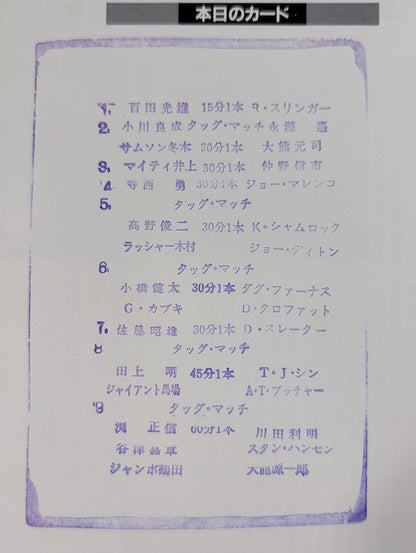 本日のカード
1. 百田光雄 15分1本 R・スリンガー
2. 小川良成 タッグ・マッチ 永源 遙
サムソン冬木 20分1本 大熊元司
3. マイティ井上 30分1本 仲野信市
4. 寺西 勇 30分1本 ジョー・マレンコ
5. タッグ・マッチ
高野俊二 30分1本 K・シャムロック
ラッシャー木村 ジョー・ディトン
6 タッグ・マッチ
小橋健太 30分1本 ダグ・ファーナス
G・カブキ D・クロファット
7. 佐藤昭雄 30分1本 D・スレーター
8 タッグ・マッチ
田上 明 45分1本 T・J・シン
ジャイアント馬場 A・T・ブッチャー
9 タッグ・マッチ
渕 正信 60分1本 川田利明
谷津嘉章 スタン・ハンセン
ジャンボ鶴田 天龍源一郎